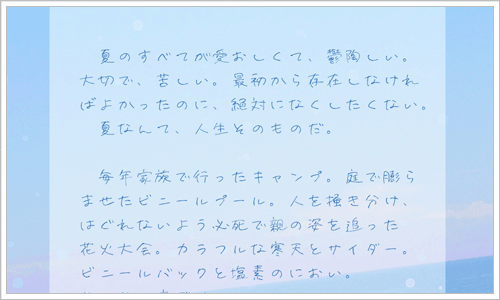 夏のすべてが愛おしくて、鬱陶しい。
大切で、苦しい。最初から存在しなけれ
ばよかったのに、絶対になくしたくない。
夏なんて、人生そのものだ。
毎年家族で行ったキャンプ。庭で膨ら
ませたビニールプール。人を掻き分け、
はぐれないよう必死で親の姿を追った
花火大会。カラフルな寒天とサイダー。
ビニールバックと塩素のにおい。